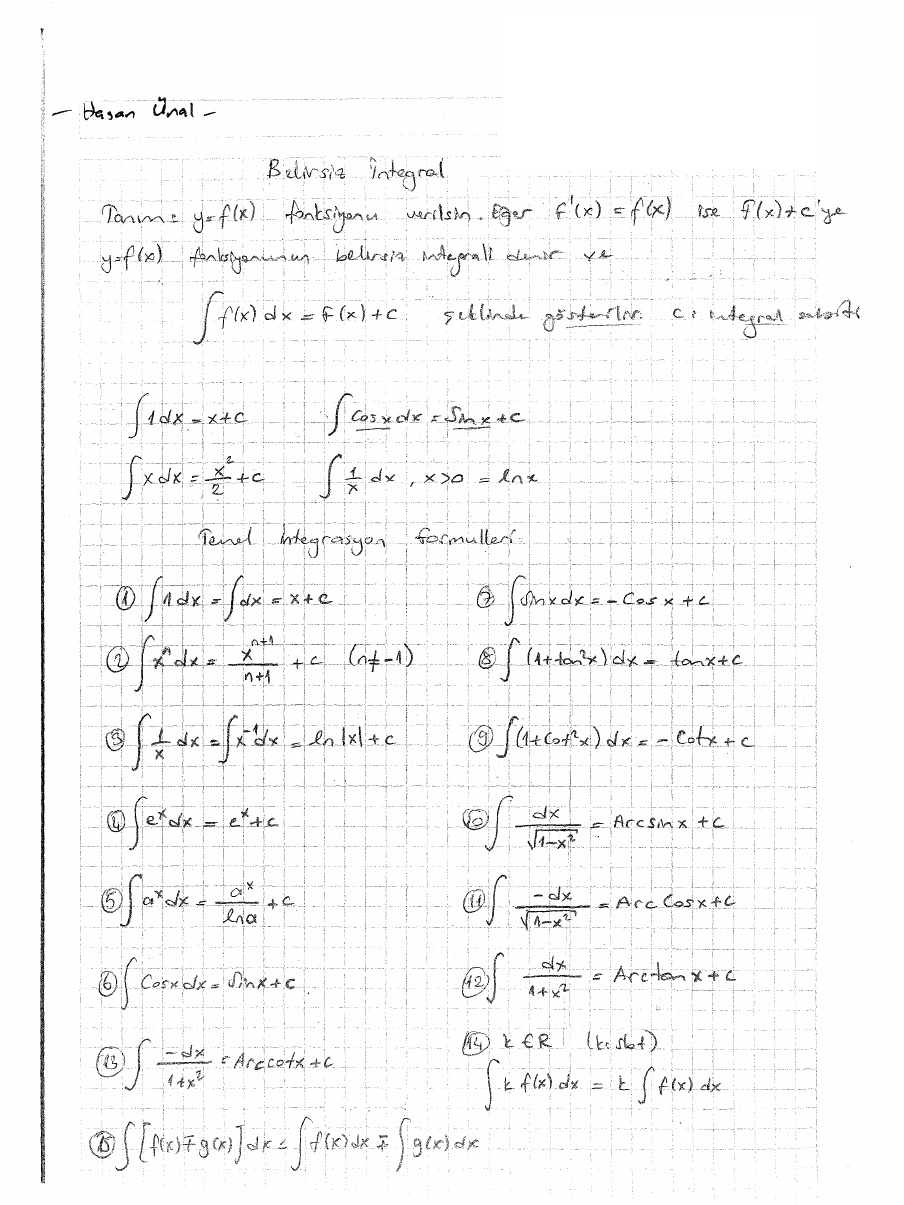 - Hasan Ünal -
Belirsiz İntegral
Tanım: y=f(x) fonksiyonu verilsin. Eğer F'(x) = f(x) ise F(x)+c'ye
y=f(x) fonksiyonunun belirsiz integrali denir ve
∫f(x) dx = F(x)+c şeklinde gösterilir. c: integral sabiti
∫1dx = x+c ∫Cosx dx = Sinx+c
∫xdx = x²/2 + c ∫1/x dx, x>0 = lnx
Temel İntegrasyon formülleri
① ∫1dx = ∫dx = x+c ⑦ ∫Sinxdx = -Cosx+c
② ∫xⁿdx = xⁿ⁺¹/n+1 + c (n≠-1) ⑧ ∫(1+tan²x)dx = tanx+c
③ ∫1/x dx = ∫x⁻¹dx = ln|x|+c ⑨ ∫(1+Cot²x)dx = -Cotx+c
④ ∫eˣdx = eˣ+c ⑩ ∫dx/√1-x² = Arcsinx+c
⑤ ∫aˣdx = aˣ/lna + c ⑪ ∫-dx/√1-x² = ArcCosx+c
⑥ ∫Cosxdx = Sinx+c ⑫ ∫dx/1+x² = Arctanx+c
⑬ ∫-dx/1+x² = Arccotx+c ⑭ k∈R (k: sbt)
∫k f(x) dx = k ∫f(x) dx
⑮ ∫[f(x)∓g(x)]dx = ∫f(x)dx ∓ ∫g(x)dx